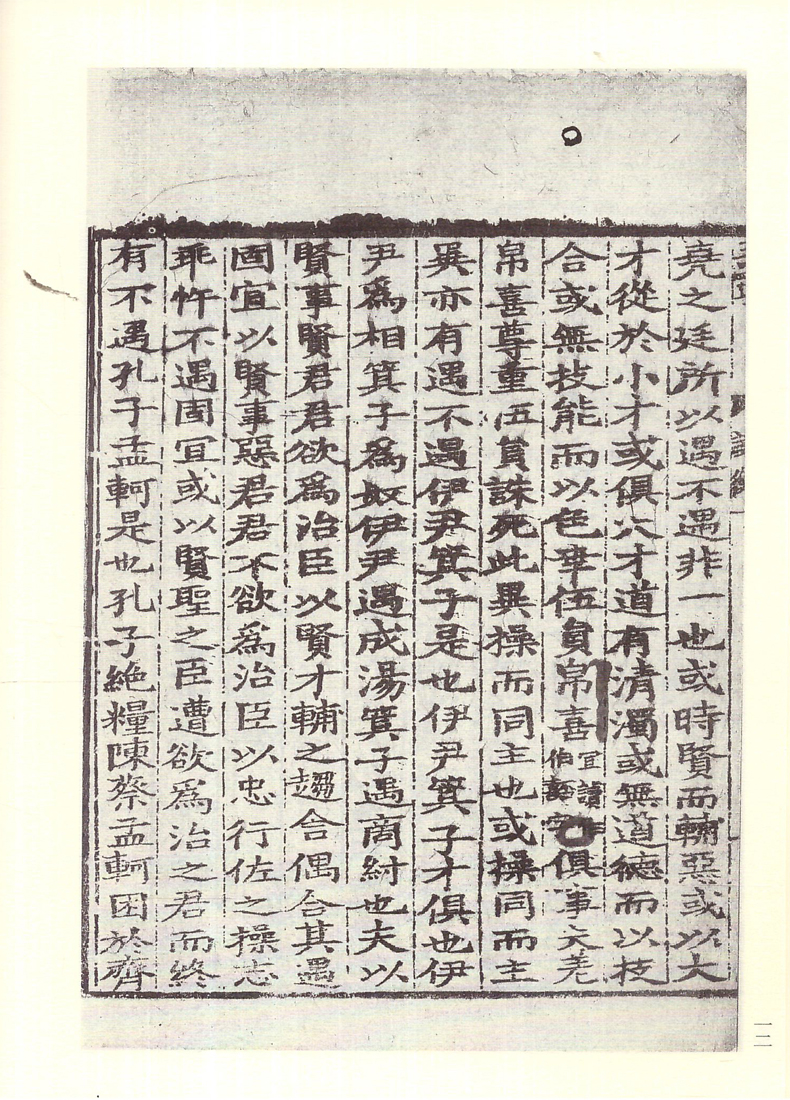 堯之廷所以遇不遇非一也或時賢而輔惡或以大
才從於小才或俱大才道有清濁或無道德而以技
合或無技能而以色幸伍員帛喜宜讀作伯嚭字俱事夫差
帛喜尊重伍員誅死此異操而同主也或操同而主
異亦有遇不遇伊尹箕子是也伊尹箕子才俱也伊
尹爲相箕子爲奴伊尹遇成湯箕子遇商紂也夫以
賢事賢君君欲爲治臣以賢才輔之趨舍偶合其遇
固宜以賢事惡君君不欲爲治臣以忠行佐之操志
乖忤不遇固宜或以賢聖之臣遭欲爲治之君而終
有不遇孔子孟軻是也孔子絶糧陳蔡孟軻困於齊